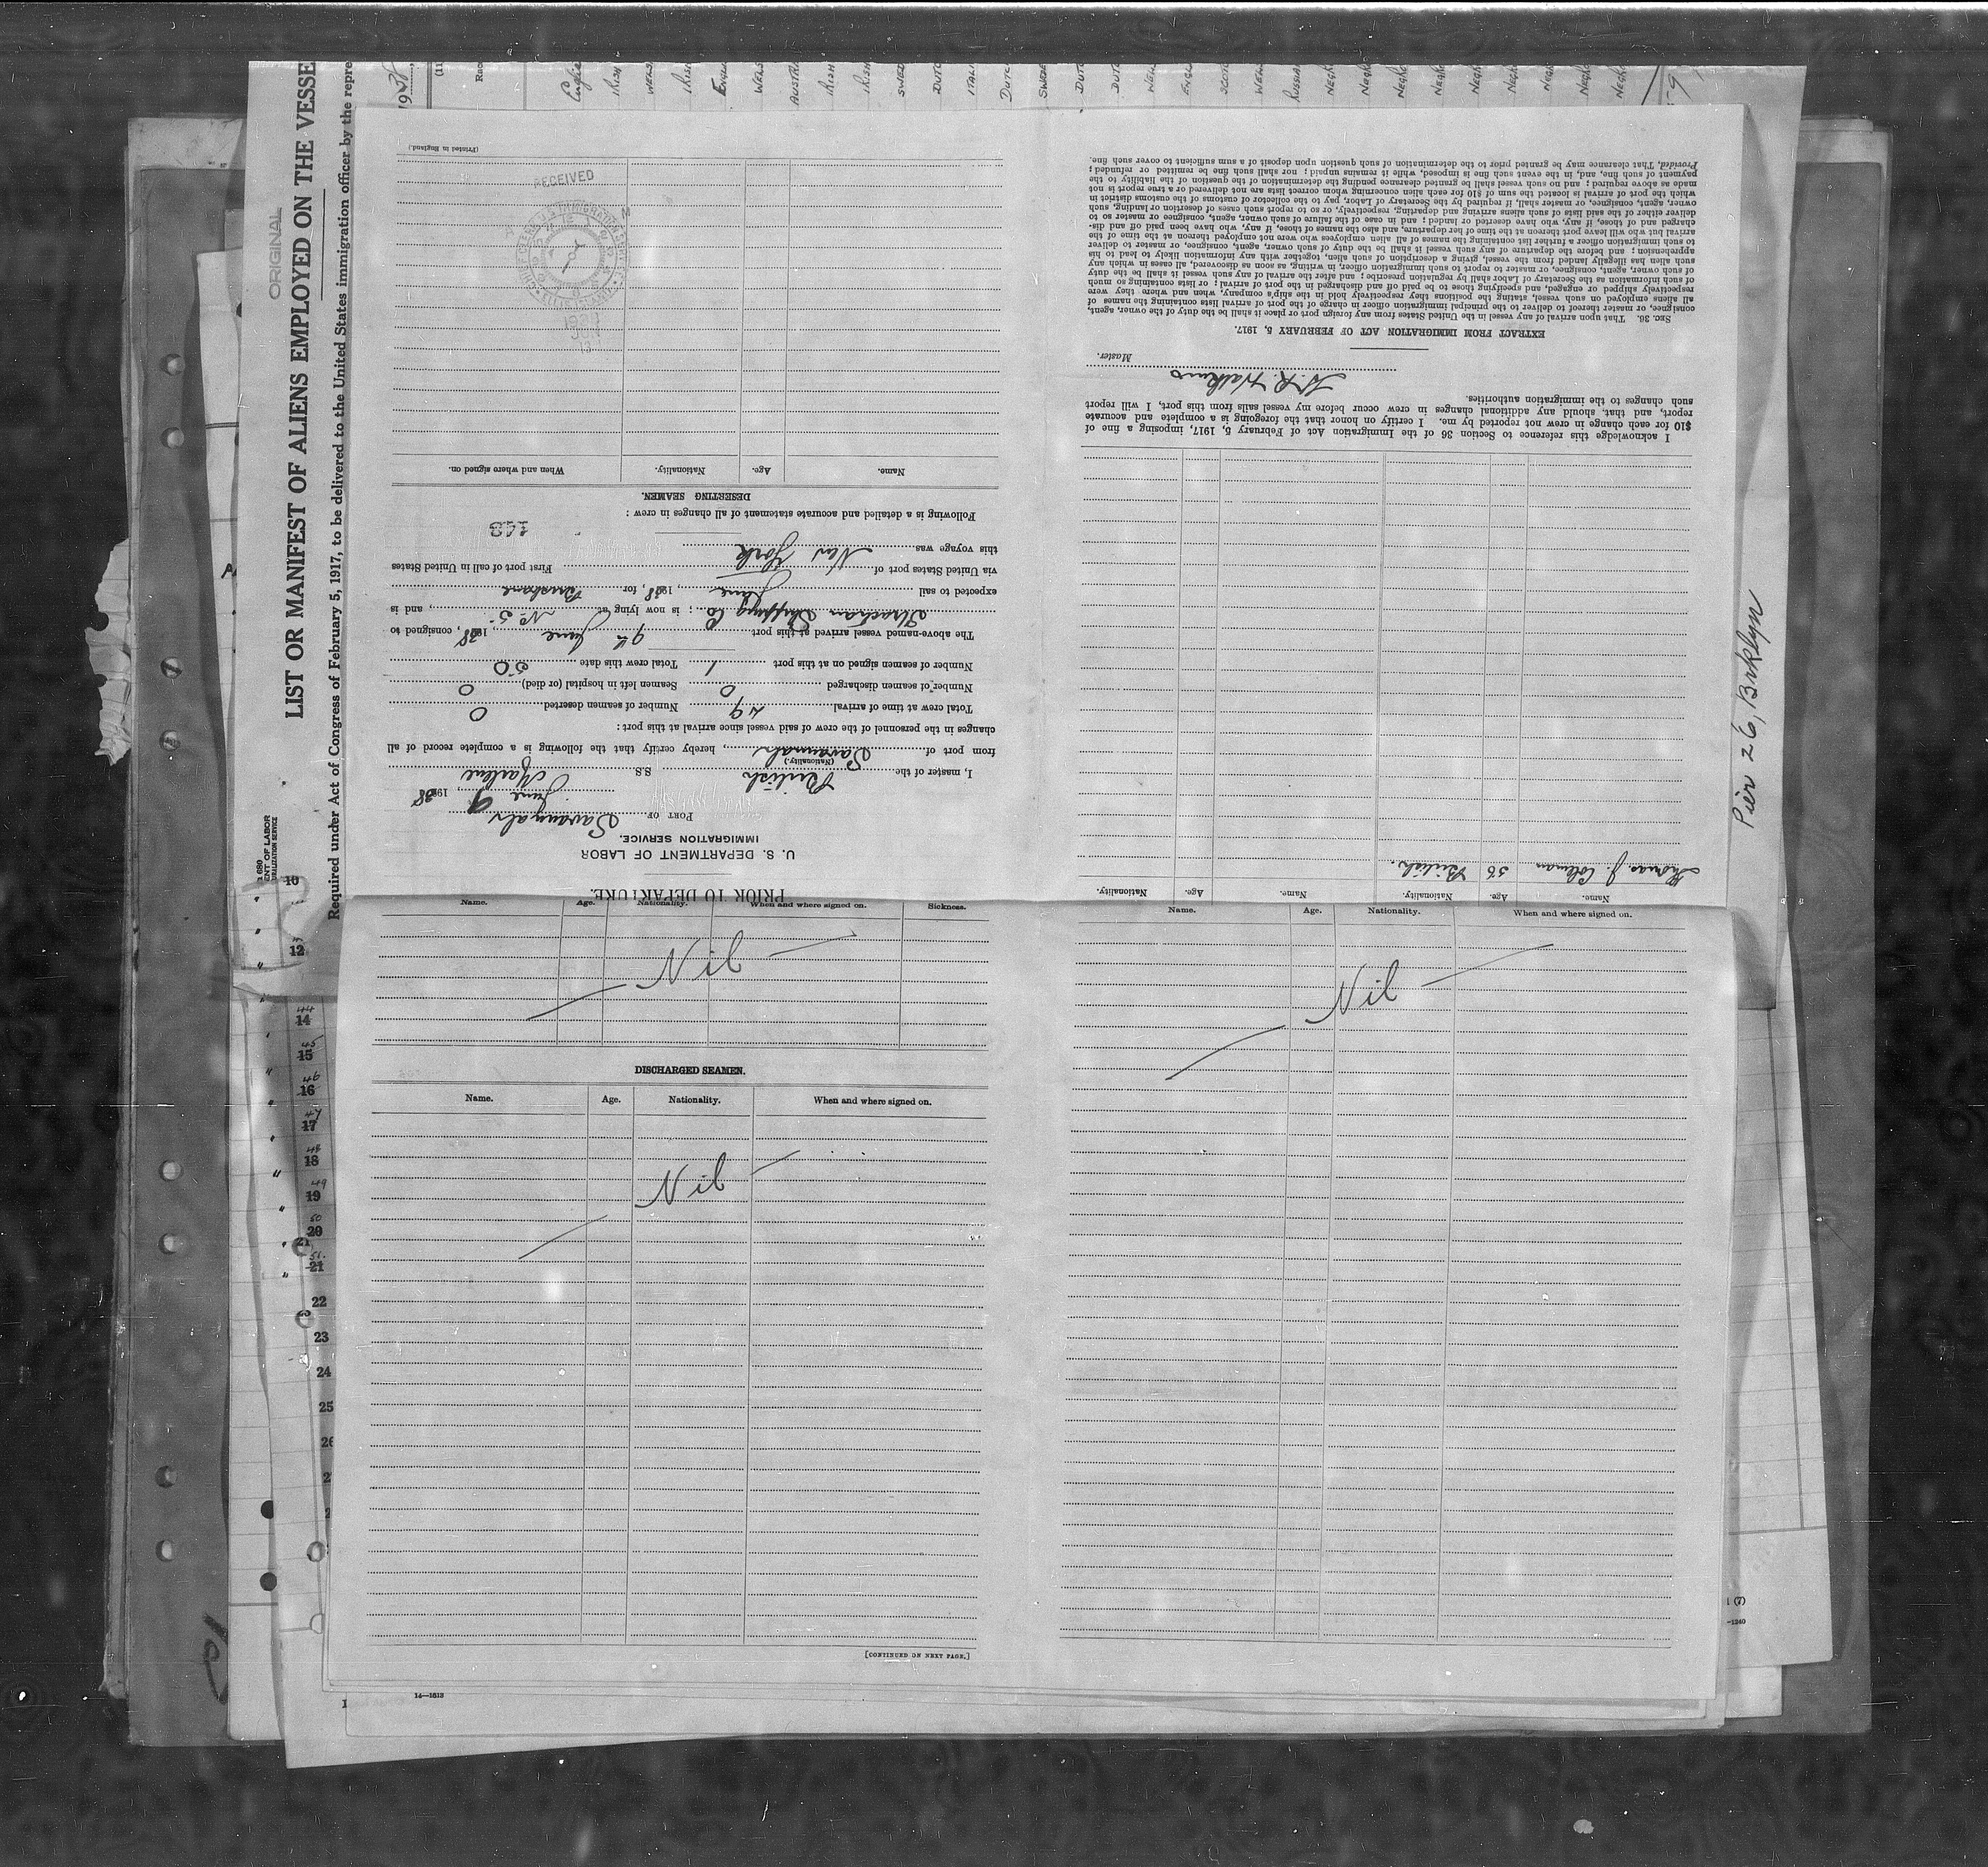 ORIGINAL
LIST OR MANIFEST OF ALIENS EMPLOYED ON THE VESSE
Required under Act of Congress of February 5, 1917, to be delivered to the United States immigration officer by the repre
1938
(11)
Rac
English
IRISH
WELS
IRIS
ENGL
WELS
AUSTRI
IRISH
IRISH
SWED
DUTC
ITALI
DUTC
SWEDE
DUT
DUT
WEL
ENGL
SCOTC
WEL
RUSSIA
NEGR
NEGR
NEGR
NEGR
NEGR
NEGR
NEGR
NEGR
NEGR
59
PRIOR TO DEPARTURE.
U. S. DEPARTMENT OF LABOR
IMMIGRATION SERVICE.
PORT OF Savannah
June 9, 1938
I, master of the British S.S.
(Nationality.)
from port of Savannah, hereby certify that the following is a complete record of all
changes in the personnel of the crew of said vessel since arrival at this port:
Total crew at time of arrival 49 Number of seamen deserted 0
Number of seamen discharged 0 Seamen left in hospital (or died) 0
Number of seamen signed on at this port 1 Total crew this date 50
The above-named vessel arrived at this port 9th June, 1938, consigned to
Strachan Shipping Co; is now lying at No 5, and is
expected to sail June, 1938, for Brisbane
via United States port of First port of call in United States
this voyage was New York
143
Following is a detailed and accurate statement of all changes in crew:
DESERTING SEAMEN.
Name. Age. Nationality. When and where signed on.
RECEIVED
ELLIS ISLAND
(Printed in England.)
Name. Age. Nationality. Name. Age. Nationality.
Thomas J. Coleman 56 British.
I acknowledge this reference to Section 36 of the Immigration Act of February 5, 1917, imposing a fine of
$10 for each change in crew not reported by me. I certify on honor that the foregoing is a complete and accurate
report, and that, should any additional changes in crew occur before my vessel sails from this port, I will report
such changes to the immigration authorities.
H.R. Watkins
Master.
EXTRACT FROM IMMIGRATION ACT OF FEBRUARY 5, 1917.
SEC. 36. That upon arrival of any vessel in the United States from any foreign port or place it shall be the duty of the owner, agent,
consignee, or master thereof to deliver to the principal immigration officer in charge of the port of arrival lists containing the names of
all aliens employed on such vessel, stating the positions they respectively hold in the ship's company, when and where they were
respectively shipped or engaged, and specifying those to be paid off and discharged in the port of arrival; or lists containing so much
of such information as the Secretary of Labor shall by regulation prescribe; and after the arrival of any such vessel it shall be the duty
of such owner, agent, consignee, or master to report to such immigration officer, in writing, as soon as discovered, all cases in which any
such alien has illegally landed from the vessel, giving a description of such alien, together with any information likely to lead to his
apprehension; and before the departure of any such vessel it shall be the duty of such owner, agent, consignee, or master to deliver
to such immigration officer a further list containing the names of all alien employees who were not employed thereon at the time of the
arrival but who will leave port thereon at the time of her departure, and also the names of those, if any, who have been paid off and dis-
charged and of those, if any, who have deserted or landed; and in case of the failure of such owner, agent, consignee or master so to
deliver either of the said lists of such aliens arriving and departing, respectively, or so to report such cases of desertion or landing, such
owner, agent, consignee, or master, shall, if required by the Secretary of Labor, pay to the collector of customs of the customs district in
which the port of arrival is located the sum of $10 for each alien concerning whom correct lists are not delivered or a true report is not
made as above required; and no such vessel shall be granted clearance pending the determination of the question of the liability to the
payment of such fine, and, in the event such fine is imposed, while it remains unpaid; nor shall such fine be remitted or refunded;
Provided, That clearance may be granted prior to the determination of such question upon deposit of a sum sufficient to cover such fine.
Pier 26, Brklyn
Name. Age. Nationality. When and where signed on. Sickness.
Nil
DISCHARGED SEAMEN.
Name. Age. Nationality. When and where signed on.
Nil
[CONTINUED ON NEXT PAGE.]
Name. Age. Nationality. When and where signed on.
Nil
10
12
44
14
45
15
46
16
47
17
48
18
49
19
50
20
21
51
21
22
23
24
25
26
14—1613
-1240